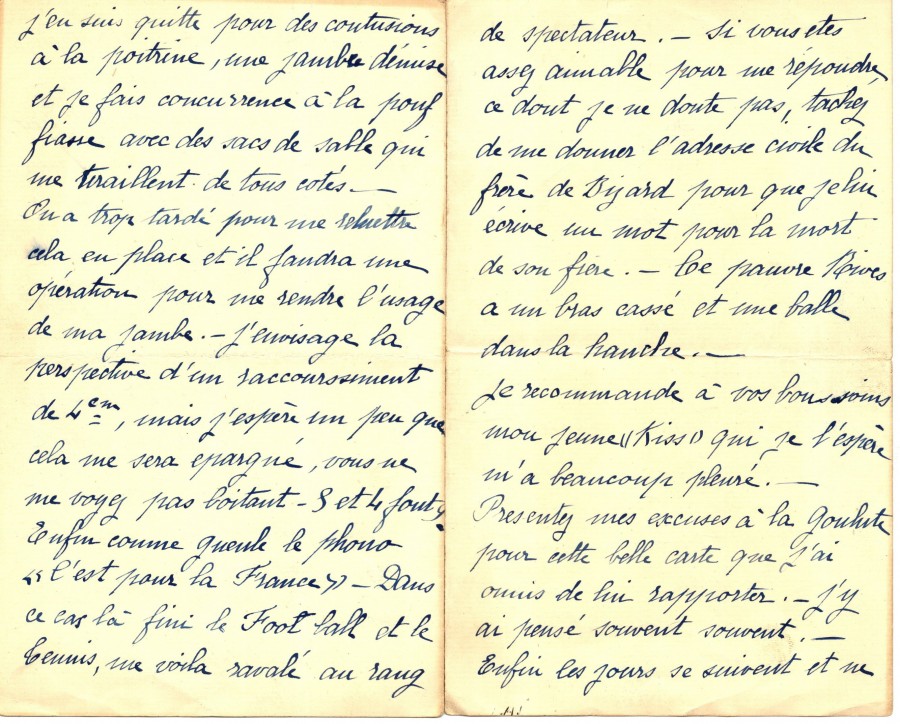 j'en suis quitte pour des contusions
à la poitrine, une jambe démise
et je fais concurrence à la pouf
fiasse avec des sacs de sable qui
me tiraillent de tous cotés. —
On a trop tardé pour me remettre
cela en place et il faudra une
opération pour me rendre l'usage
de ma jambe. — J'envisage la
perspective d'un raccourssiment
de 4 cm, mais j'espère un peu que
cela me sera epargné, vous ne
me voyez pas boitant - 3 et 4 font
Enfin comme gueule le phono
« C'est pour la France » — Dans
ce cas là fini le Foot ball et le
Tennis, me voila ravalé au rang
de spectateur. — Si vous etes
assez aimable pour me répondre,
ce dont je ne doute pas, tachez
de me donner l'adresse civile du
frère de Bijard pour que je lui
écrive un mot pour la mort
de son frere. — Ce pauvre Rives
a un bras cassé et une balle
dans la hanche. —
Je recommande à vos bons soins
mon jeune «Kiss» qui je l'espère
m'a beaucoup pleuré. —
Presentez mes excuses à la Goulute
pour cette belle carte que j'ai
omis de lui rapporter. — J'y
ai pensé souvent souvent. —
Enfin les jours se suivent et ne